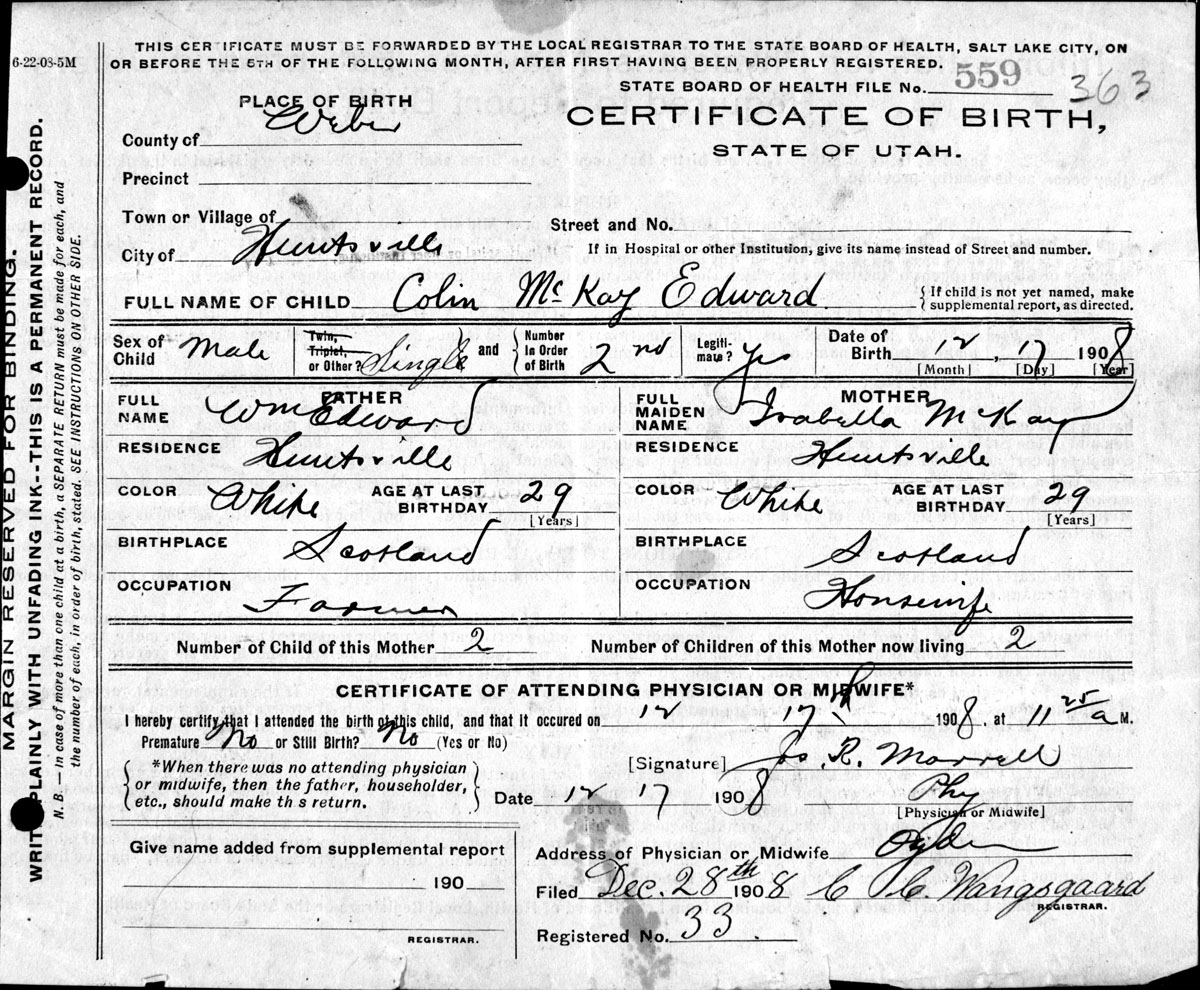 THIS CERTIFICATE MUST BE FORWARDED BY THE LOCAL REGISTRAR TO THE STATE BOARD OF HEALTH, SALT LAKE CITY, ON
OR BEFORE THE 5TH OF THE FOLLOWING MONTH, AFTER FIRST HAVING BEEN PROPERLY REGISTERED.
6-22-08-5M
STATE BOARD OF HEALTH FILE No. 559 363
PLACE OF BIRTH
CERTIFICATE OF BIRTH,
STATE OF UTAH.
County of Weber
Precinct
Town or Village of
Street and No.
City of Huntsville
If in Hospital or other Institution, give its name instead of Street and number.
FULL NAME OF CHILD Colin McKay Edward
{If child is not yet named, make supplemental report, as directed.
Sex of Child Male
Twin, Triplet, or Other? Single and Number In Order of Birth 2nd
Legitimate? Yes
Date of Birth 12, 17 1908
[Month] [Day] [Year]
FATHER
FULL NAME Wm Edward
RESIDENCE Huntsville
COLOR White AGE AT LAST BIRTHDAY 29 [Years]
BIRTHPLACE Scotland
OCCUPATION Farmer
MOTHER
FULL MAIDEN NAME Isabella McKay
RESIDENCE Huntsville
COLOR White AGE AT LAST BIRTHDAY 29 [Years]
BIRTHPLACE Scotland
OCCUPATION Housewife
Number of Child of this Mother 2 Number of Children of this Mother now living 2
CERTIFICATE OF ATTENDING PHYSICIAN OR MIDWIFE*
I hereby certify that I attended the birth of this child, and that it occured on 12 17th 1908, at 11 25/a M.
Premature No or Still Birth? No (Yes or No)
[Signature] Jos R. Morrell
*When there was no attending physician
or midwife, then the father, householder,
etc., should make this return.
Date 12 17 1908
Phy
[Physician or Midwife]
Give name added from supplemental report
190
REGISTRAR.
Address of Physician or Midwife Ogden
Filed Dec. 28th 1908 C. C. Wangsgaard
REGISTRAR.
Registered No. 33.
MARGIN RESERVED FOR BINDING.
WRITE PLAINLY WITH UNFADING INK--THIS IS A PERMANENT RECORD.
N. B.—In case of more than one child at a birth, a SEPARATE RETURN must be made for each, and
the number of each, in order of birth, stated. SEE INSTRUCTIONS ON OTHER SIDE.